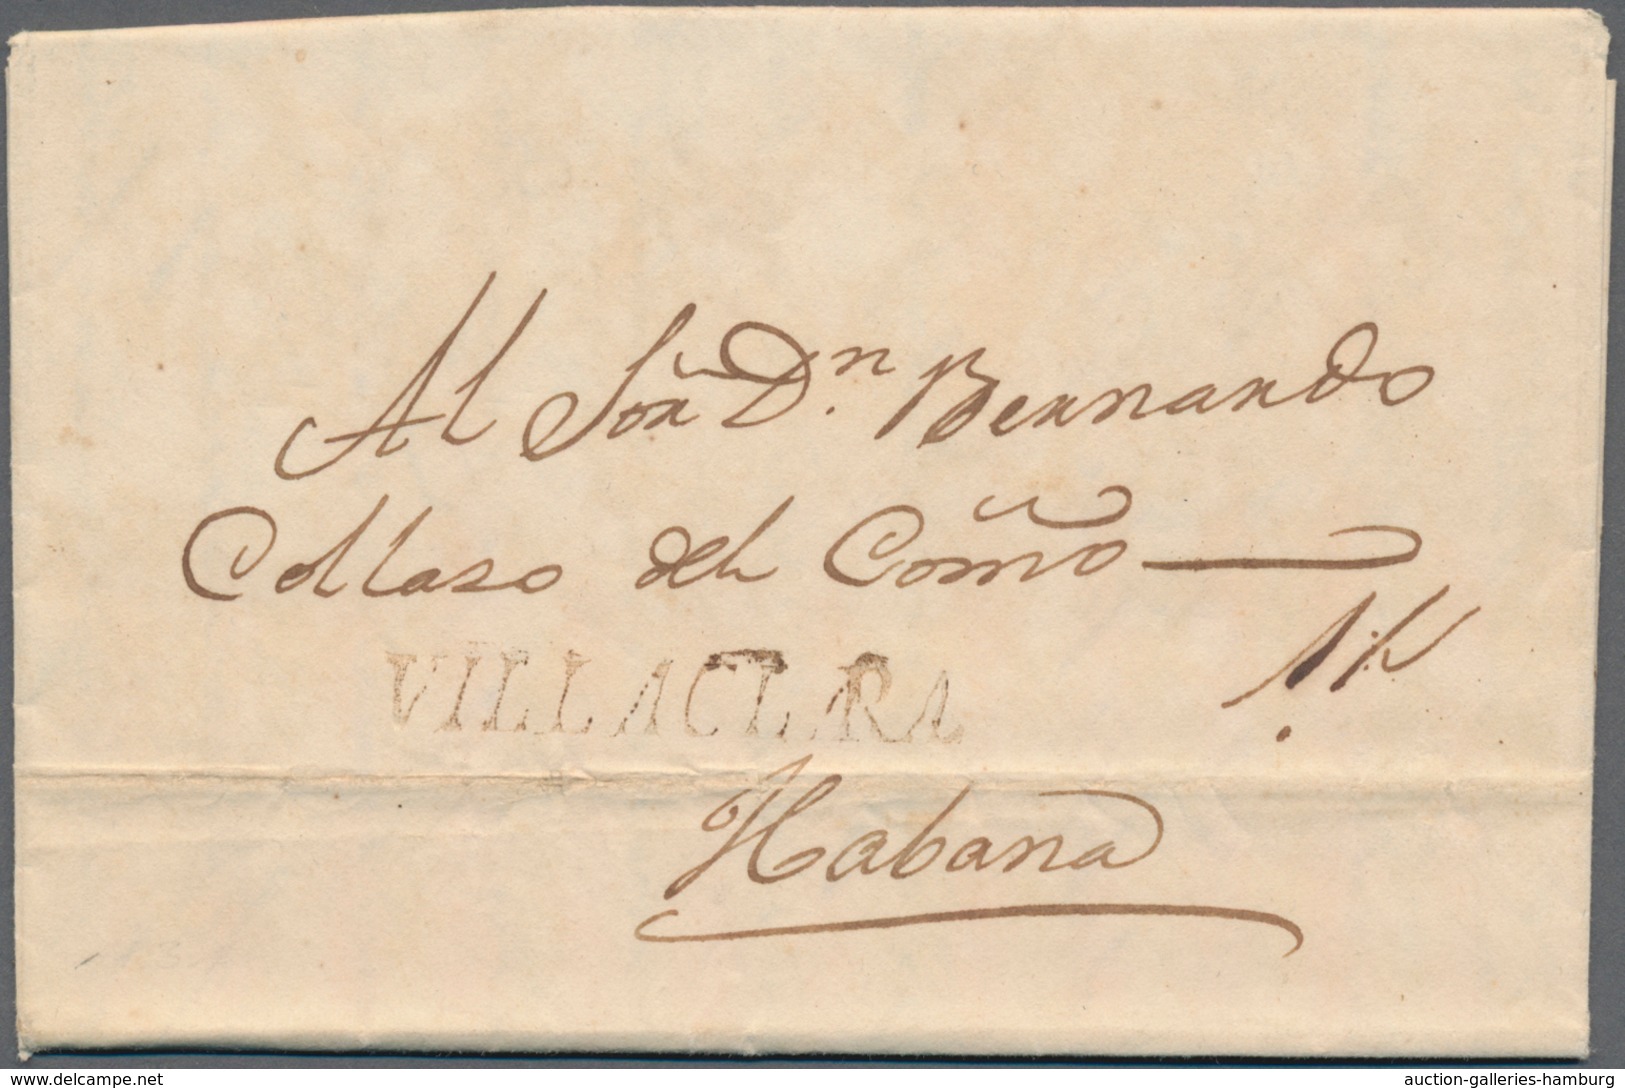 Al Sõr Dn. Bernando
Collaso del Com̃o
VILLACLARA
Habana
www.delcampe.net
auction-galleries-hamburg